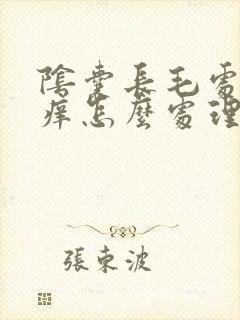 陰囊長毛處
痒怎麼處理
張東波